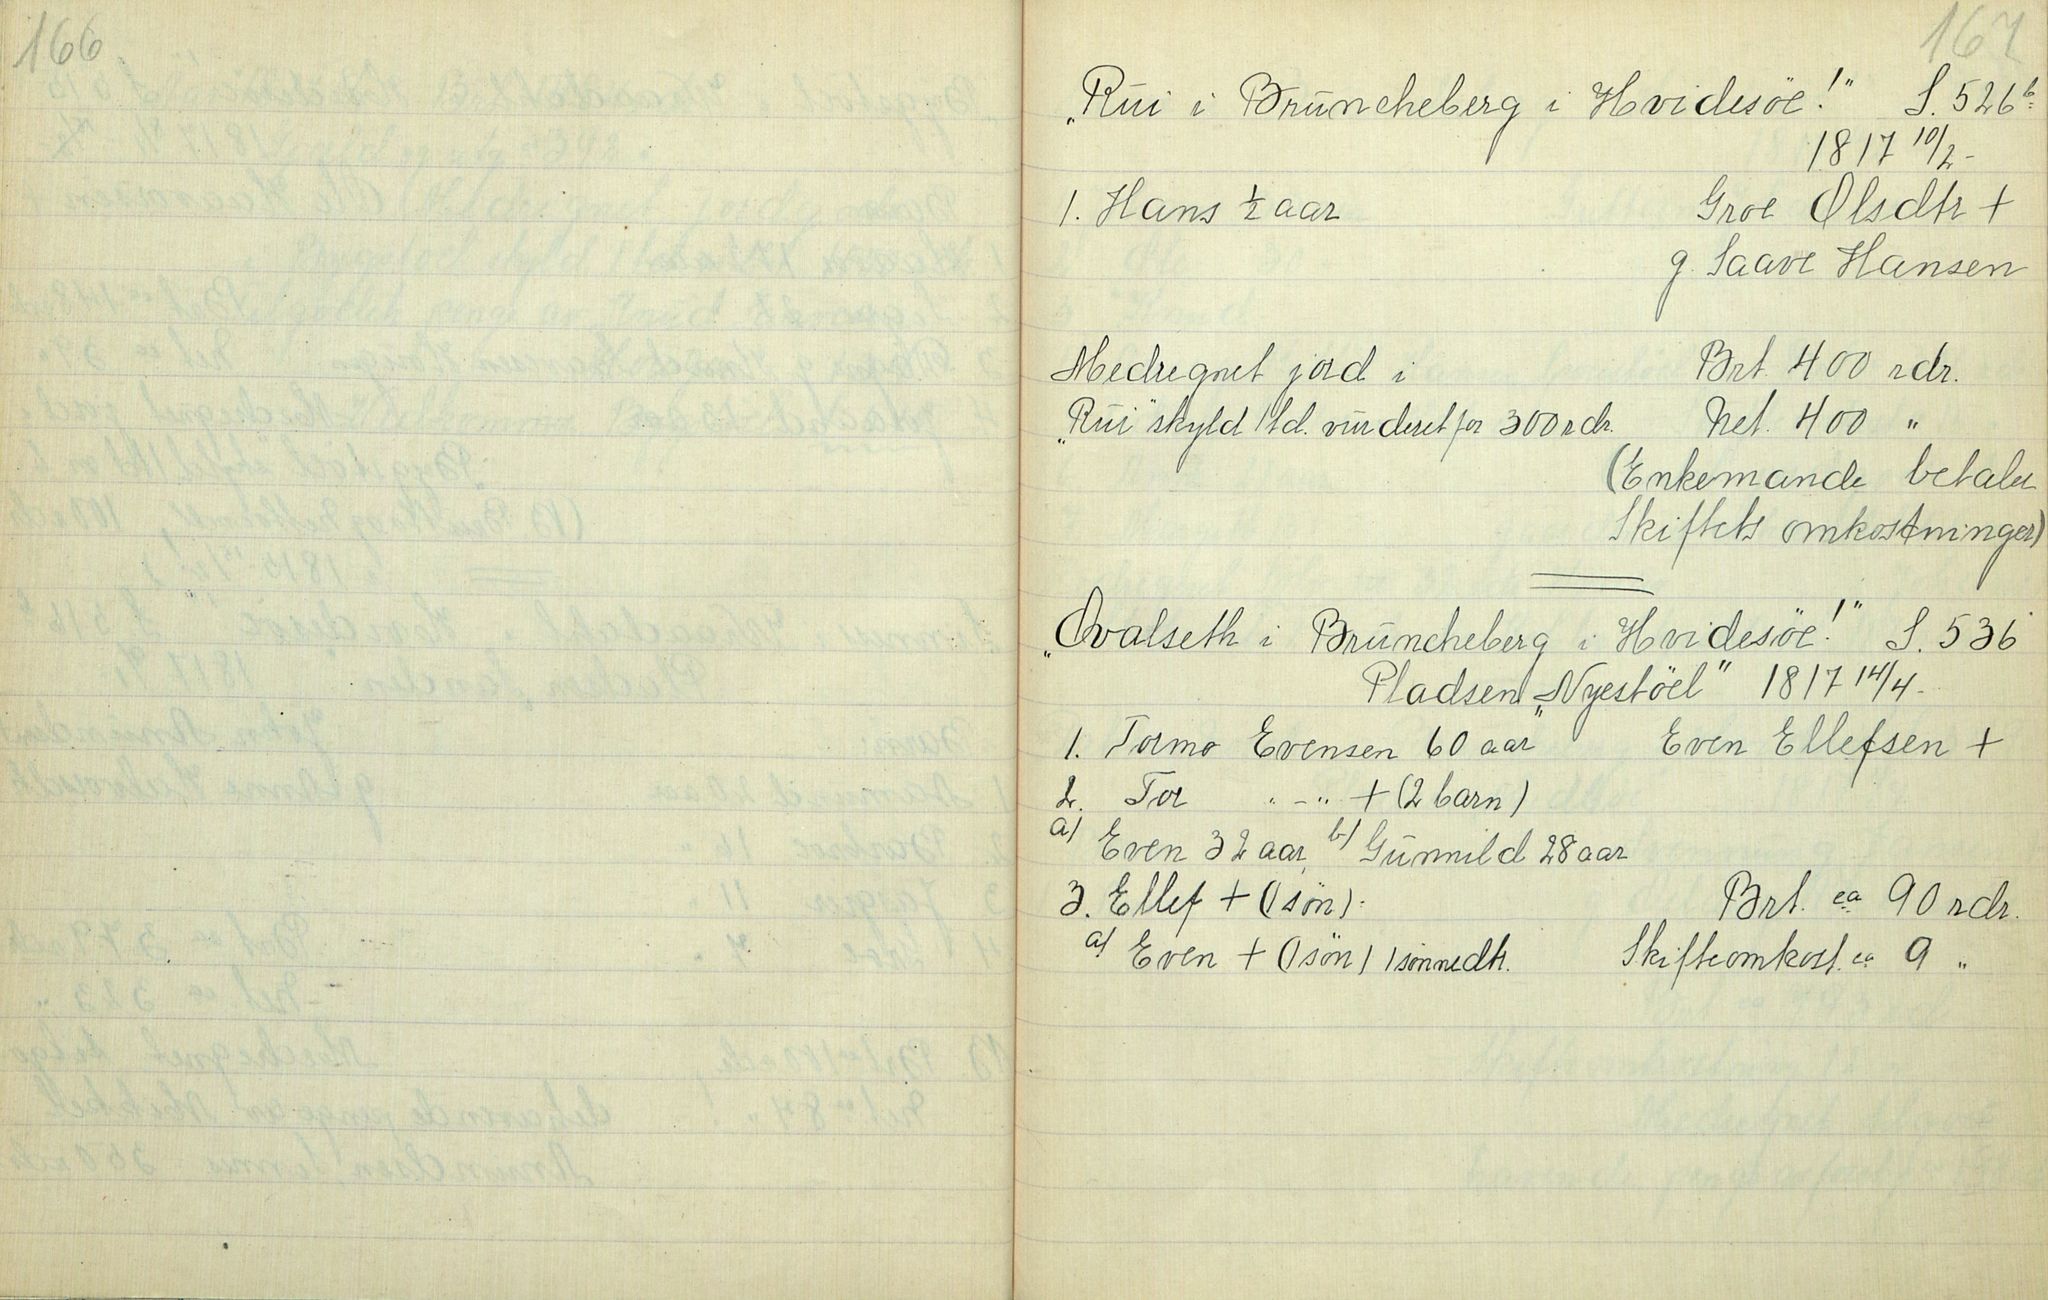 166
167
„Rui i Brŭncheberg i Hvidesöe!" S. 526 b
1817 10/2-
1. Hans ½ aar Groe Olsdtr +
g. Saave Hansen
Medregnet jord i Brt. 400 rdr.
„Rŭi" skyld 1 td. vŭrderet for 300 rdr. Net. 400 "
(Enkemande betaler
Skiftets omkostninger)
„Qvalseth i Brŭncheberg i Hvidesöe!" S. 536
Pladsen „Nyestöel" 1817 14/4-
1. Tormo Evensen 60 aar Even Ellefsen +
2. Tor " - " + (2 barn)
a) Even 32 aar, b) Gŭnnild 28 aar
3. Ellef + (1 sön): Brt. ca 90 rdr.
a) Even + (1 sön) 1 sönnedtr. Skifteomkost. ca 9 "